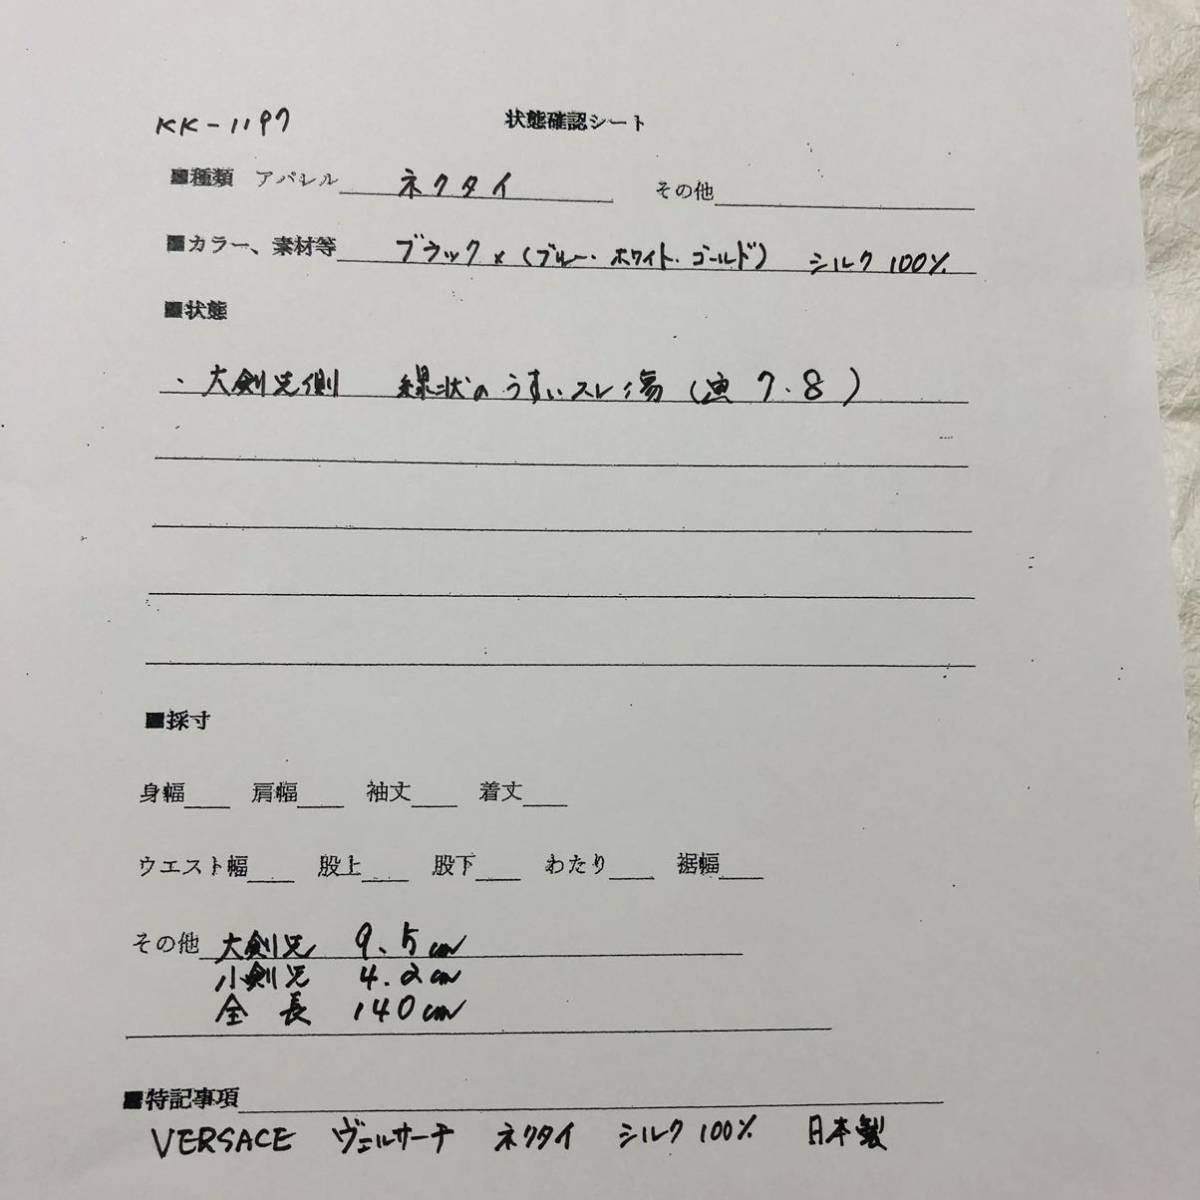 KK-1197 状態確認シート
■種類 アパレル ネクタイ その他
■カラー、素材等 ブラック×(ブルー・ホワイト・ゴールド) シルク100%
■状態
・大剣先側 線状のうすいスレ傷(画7.8)
■採寸
身幅 肩幅 袖丈 着丈
ウエスト幅 股上 股下 わたり 裾幅
その他 大剣先 9.5cm
小剣先 4.2cm
全長 140cm
■特記事項
VERSACE ヴェルサーチ ネクタイ シルク100% 日本製